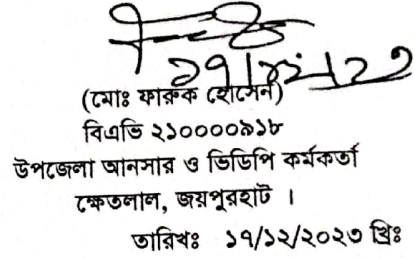 ১৭/১২/২৩
(মোঃ ফারুক হোসেন)
বিএভি ২১০০০০৯১৮
উপজেলা আনসার ও ভিডিপি কর্মকর্তা
ক্ষেতলাল, জয়পুরহাট ।
তারিখঃ ১৭/১২/২০২৩ খ্রিঃ